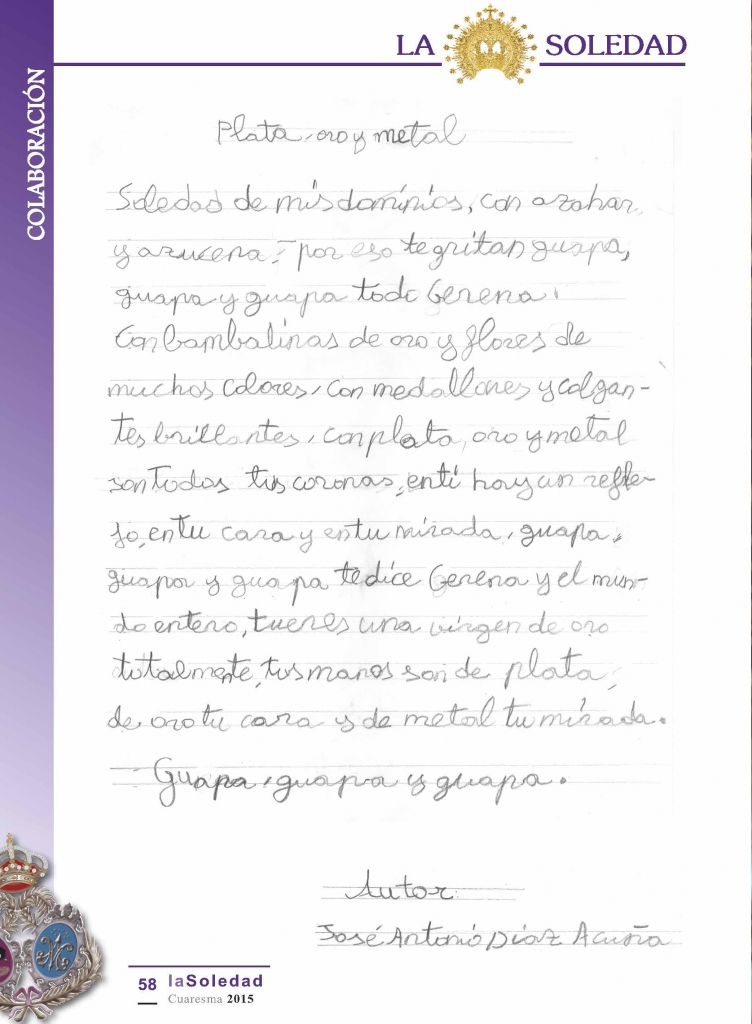 LA SOLEDAD
COLABORACIÓN
Plata, oro y metal
Soledad de mis dominios, con azahar
y azucena, por eso te gritan guapa,
guapa y guapa todo Gerena.
Con bambalinas de oro y flores de
muchos colores, con medallones y colgan-
tes brillantes, con plata, oro y metal
son todos tus coronas, en ti hay un refle-
jo, en tu cara y en tu mirada, guapa,
guapa y guapa te dice Gerena y el mun-
do entero, tu eres una virgen de oro
totalmente, tus manos son de plata,
de oro tu cara y de metal tu mirada.
- Guapa, guapa y guapa.
Autor
José Antonio Díaz Acuña
58 laSoledad
Cuaresma 2015